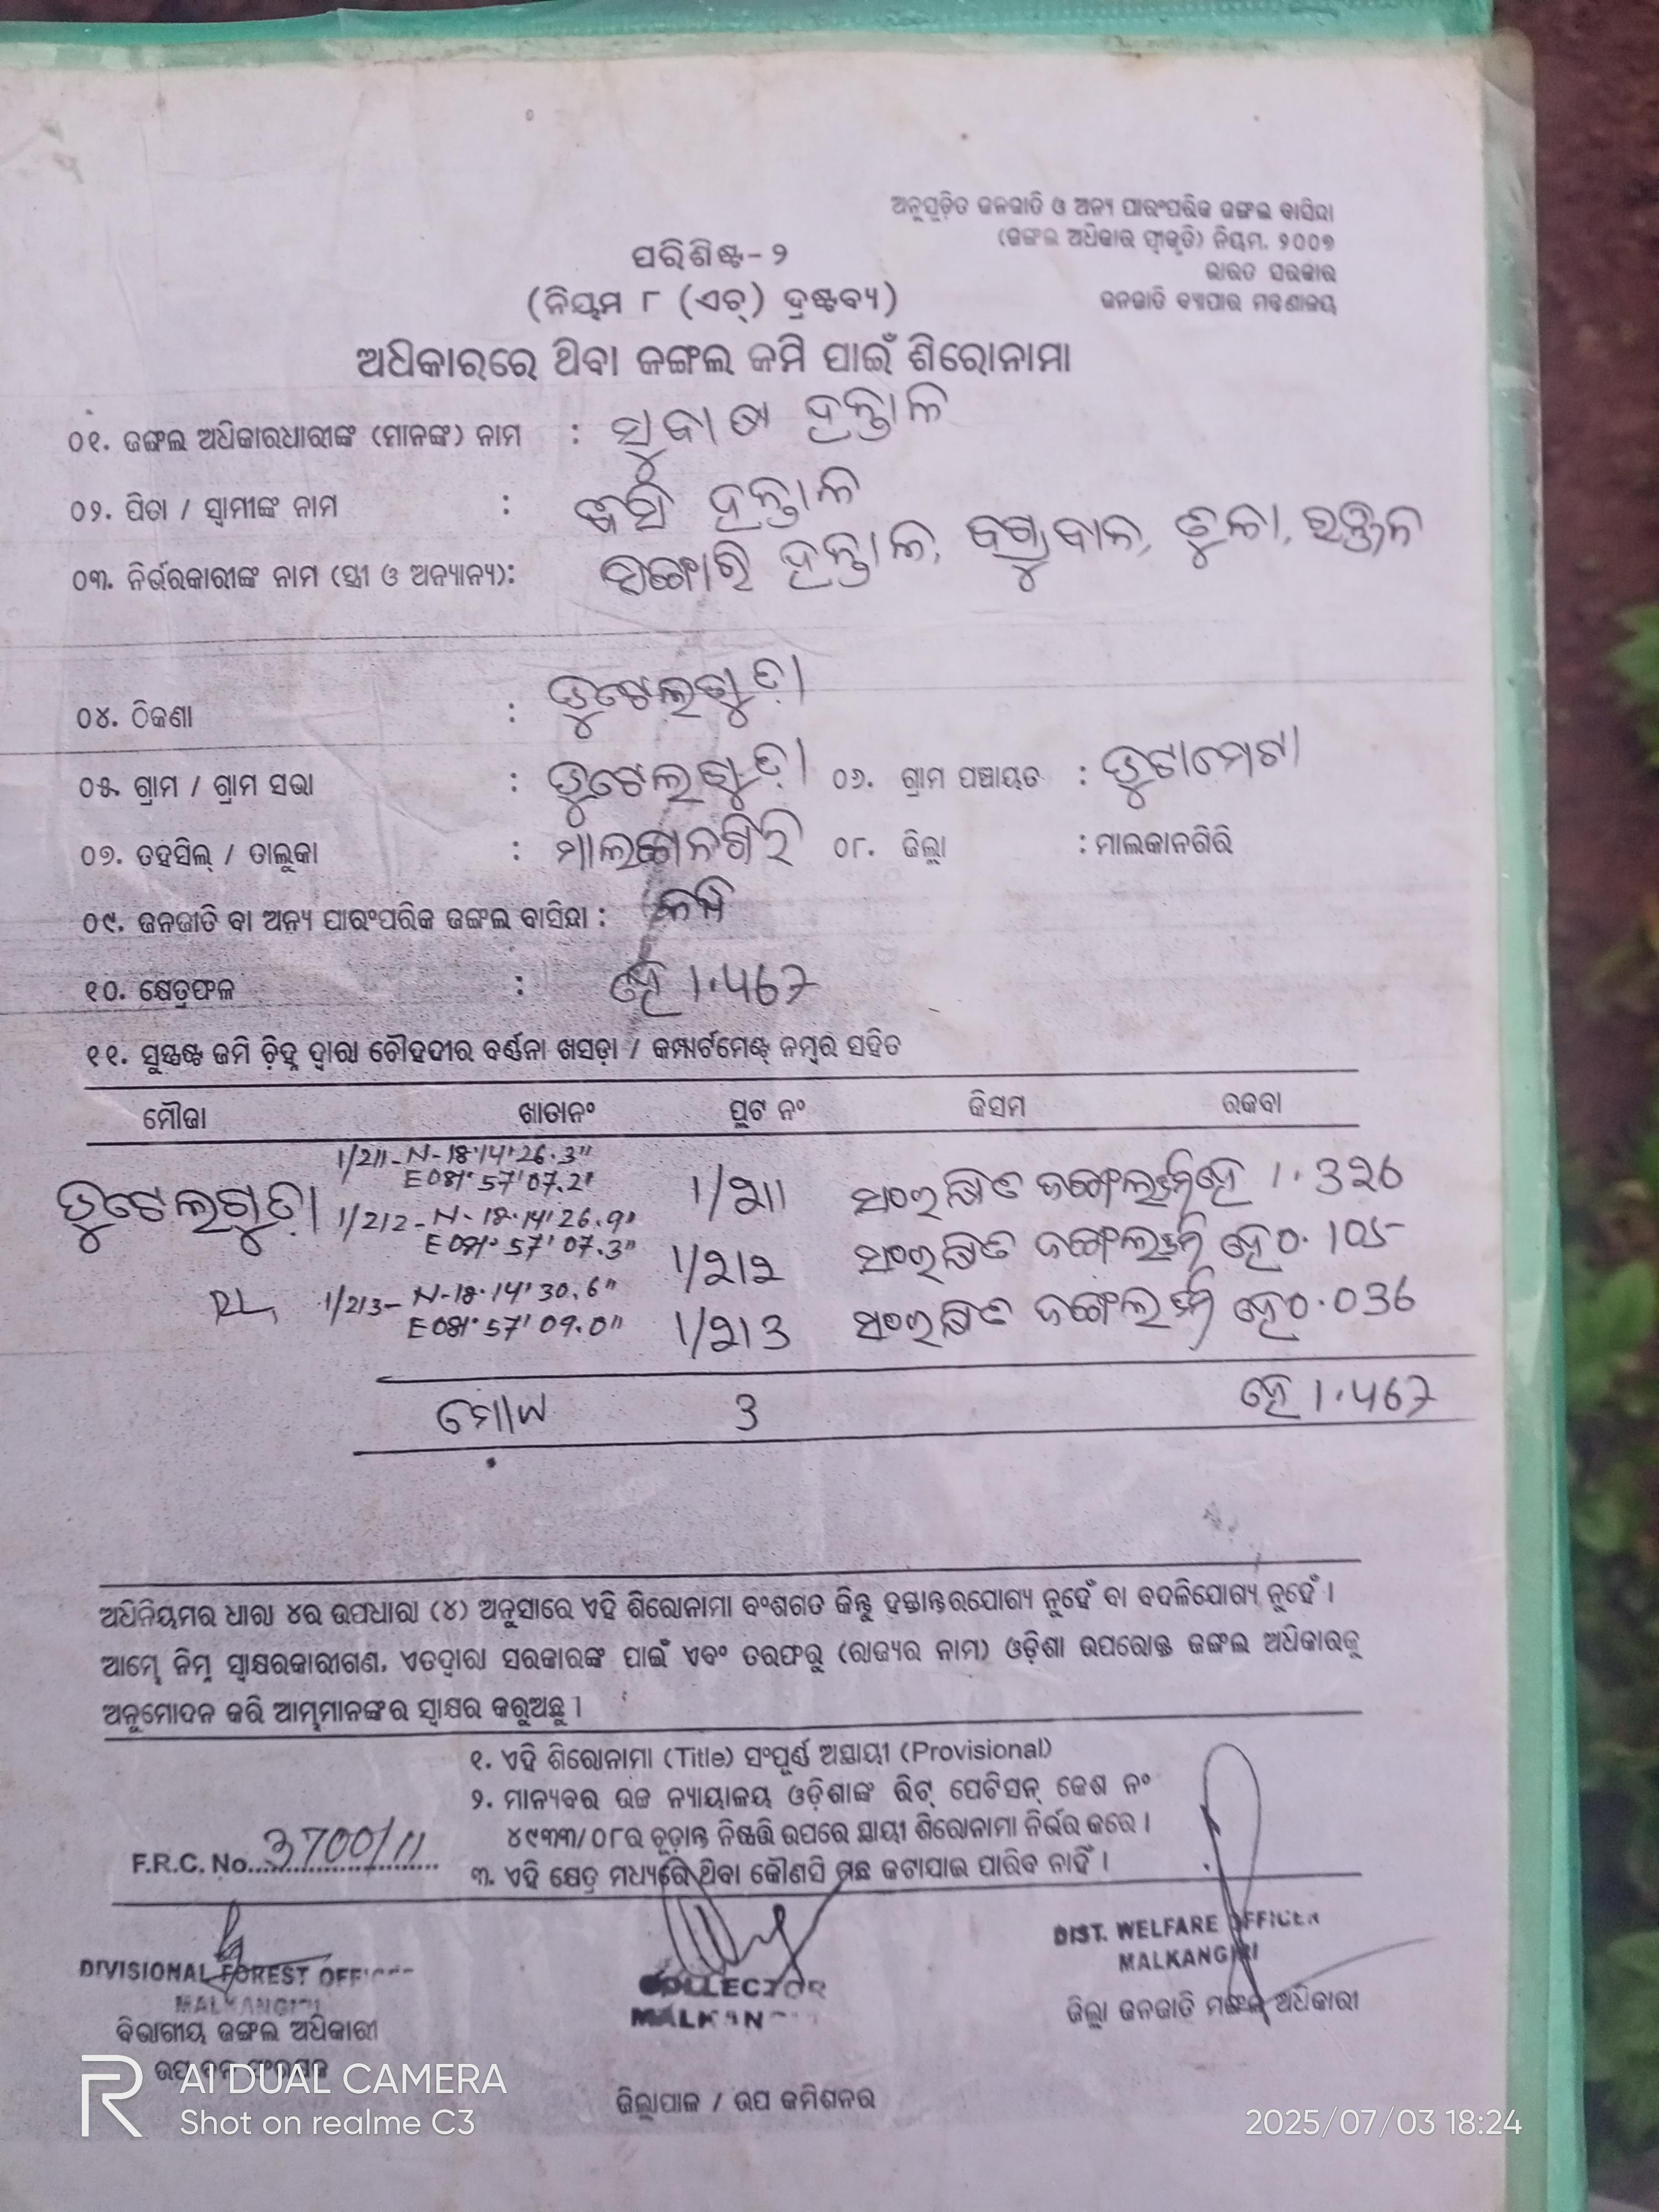 ଅନୁସୂଚିତ ଜନଜାତି ଓ ଅନ୍ୟ ପାରଂପରିକ ଜଙ୍ଗଲ ବାସିନ୍ଦା
(ଜଙ୍ଗଲ ଅଧିକାର ସ୍ୱୀକୃତି) ନିୟମ. ୨୦୦୭
ଭାରତ ସରକାର
ଜନଜାତି ବ୍ୟାପାର ମନ୍ତ୍ରଣାଳୟ
ପରିଶିଷ୍ଟ-୨
(ନିୟମ ୮ (ଏଚ୍) ଦ୍ରଷ୍ଟବ୍ୟ)
ଅଧିକାରରେ ଥିବା ଜଙ୍ଗଲ ଜମି ପାଇଁ ଶିରୋନାମା
୦୧. ଜଙ୍ଗଲ ଅଧିକାରଧାରୀଙ୍କ (ମାନଙ୍କ) ନାମ : ହନ୍ତାଳ
୦୨. ପିତା / ସ୍ୱାମୀଙ୍କ ନାମ : ହନ୍ତାଳ
୦୩. ନିର୍ଭରକାରୀଙ୍କ ନାମ (ସ୍ତ୍ରୀ ଓ ଅନ୍ୟାନ୍ୟ): ହନ୍ତାଳ,
୦୪. ଠିକଣା :
୦୫. ଗ୍ରାମ / ଗ୍ରାମ ସଭା : ୦୬. ଗ୍ରାମ ପଞ୍ଚାୟତ :
୦୭. ତହସିଲ୍ / ତାଲୁକା : ମାଲକାନଗିରି ୦୮. ଜିଲ୍ଲା : ମାଲକାନଗିରି
୦୯. ଜନଜାତି ବା ଅନ୍ୟ ପାରଂପରିକ ଜଙ୍ଗଲ ବାସିନ୍ଦା :
୧୦. କ୍ଷେତ୍ରଫଳ : ହେ 1.467
୧୧. ସୁସ୍ପଷ୍ଟ ଜମି ଚିହ୍ନ ଦ୍ୱାରା ଚୌହଦ୍ଦୀର ବର୍ଣ୍ଣନା ଖସଡ଼ା / କମ୍ପାର୍ଟମେଣ୍ଟ୍ ନମ୍ବର ସହିତ
ମୌଜା ଖାତାନଂ ପ୍ଲଟ ନଂ କିସମ ରକବା
1/211- N-18°14'26.3"
E081°57'07.2" 1/211 ସଂରକ୍ଷିତ ଜଙ୍ଗଲଜମି ହେ 1.326
1/212- N-18°14'26.9"
E081°57'07.3" 1/212 ସଂରକ୍ଷିତ ଜଙ୍ଗଲଜମି ହେ 0.105
1/213- N-18°14'30.6"
E081°57'09.0" 1/213 ସଂରକ୍ଷିତ ଜଙ୍ଗଲଜମି ହେ 0.036
ମୋଟ 3 ହେ 1.467
ଅଧିନିୟମର ଧାରା ୪ର ଉପଧାରା (୪) ଅନୁସାରେ ଏହି ଶିରୋନାମା ବଂଶଗତ କିନ୍ତୁ ହସ୍ତାନ୍ତରଯୋଗ୍ୟ ନୁହେଁ ବା ବଦଳିଯୋଗ୍ୟ ନୁହେଁ ।
ଆମ୍ଭେ ନିମ୍ନ ସ୍ୱାକ୍ଷରକାରୀଗଣ, ଏତଦ୍ୱାରା ସରକାରଙ୍କ ପାଇଁ ଏବଂ ତରଫରୁ (ରାଜ୍ୟର ନାମ) ଓଡ଼ିଶା ଉପରୋକ୍ତ ଜଙ୍ଗଲ ଅଧିକାରକୁ
ଅନୁମୋଦନ କରି ଆମ୍ଭମାନଙ୍କର ସ୍ୱାକ୍ଷର କରୁଅଛୁ ।
୧. ଏହି ଶିରୋନାମା (Title) ସଂପୂର୍ଣ୍ଣ ଅସ୍ଥାୟୀ (Provisional)
୨. ମାନ୍ୟବର ଉଚ୍ଚ ନ୍ୟାୟାଳୟ ଓଡ଼ିଶାଙ୍କ ରିଟ୍ ପେଟିସନ୍ କେଶ ନଂ
୪୯୩୩/୦୮ର ଚୂଡ଼ାନ୍ତ ନିଷ୍ପତ୍ତି ଉପରେ ସ୍ଥାୟୀ ଶିରୋନାମା ନିର୍ଭର କରେ ।
F.R.C. No. 3700/11
୩. ଏହି କ୍ଷେତ୍ର ମଧ୍ୟରେ ଥିବା କୌଣସି ଗଛ କଟାଯାଇ ପାରିବ ନାହିଁ ।
DIVISIONAL FOREST OFFICER
MALKANGIRI
ବିଭାଗୀୟ ଜଙ୍ଗଲ ଅଧିକାରୀ
COLLECTOR
MALKAN
ଜିଲ୍ଲାପାଳ / ଉପ କମିଶନର
DIST. WELFARE OFFICER
MALKANGIRI
ଜିଲ୍ଲା ଜନଜାତି ମଙ୍ଗଳ ଅଧିକାରୀ
AI DUAL CAMERA
Shot on realme C3
2025/07/03 18:24